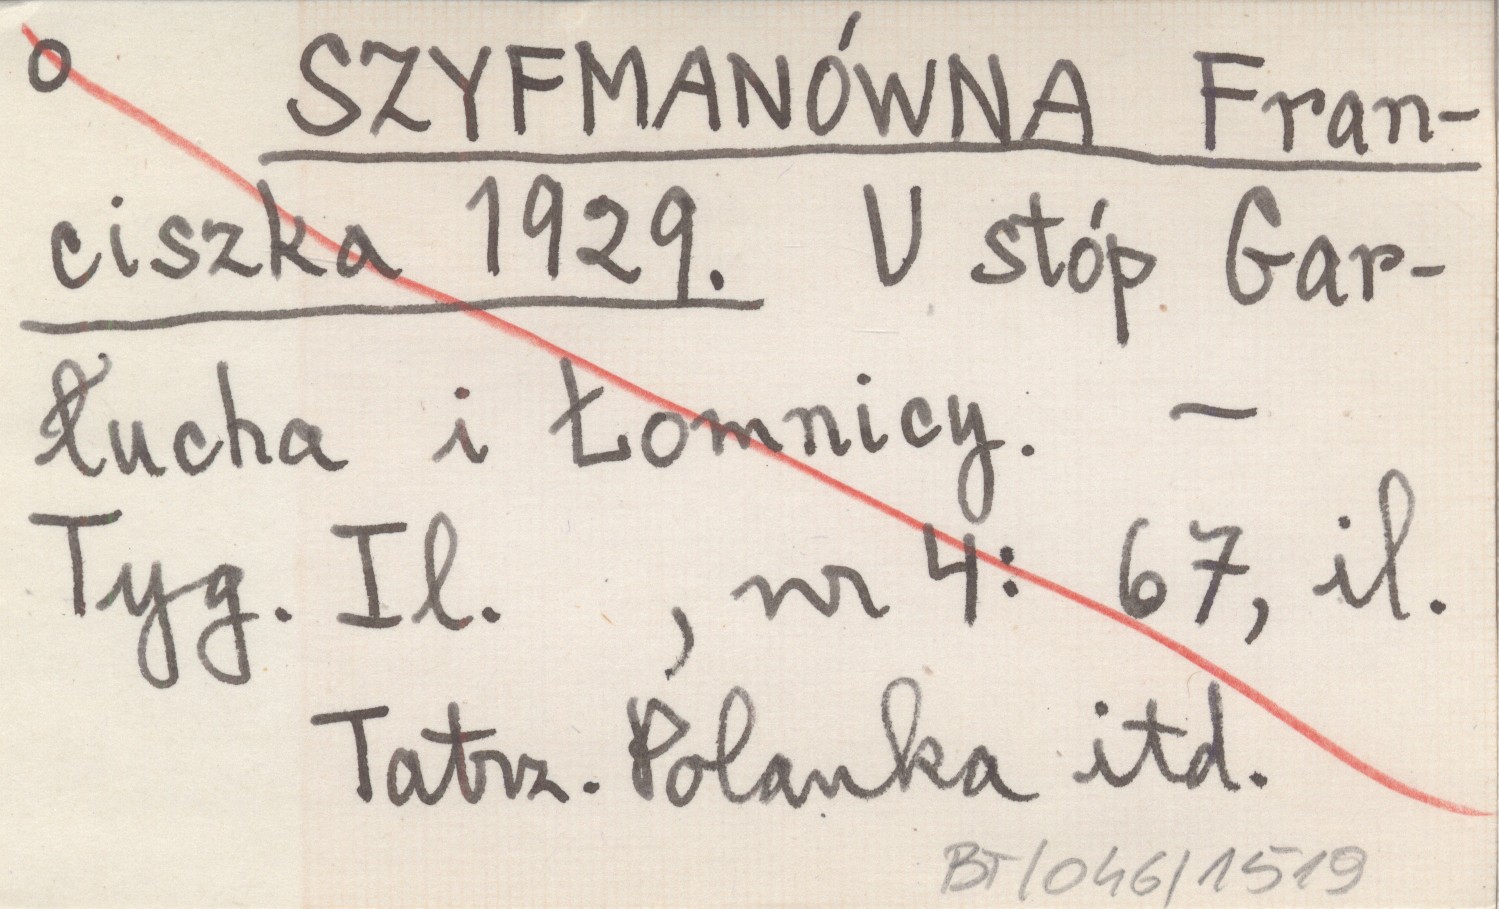 o SZYFMANÓWNA Fran-
ciszka 1929. U stóp Gar-
łucha i Łomnicy. —
Tyg. Il. , nr 4: 67, il.
Tatrz. Polanka itd.
BT/046/1519